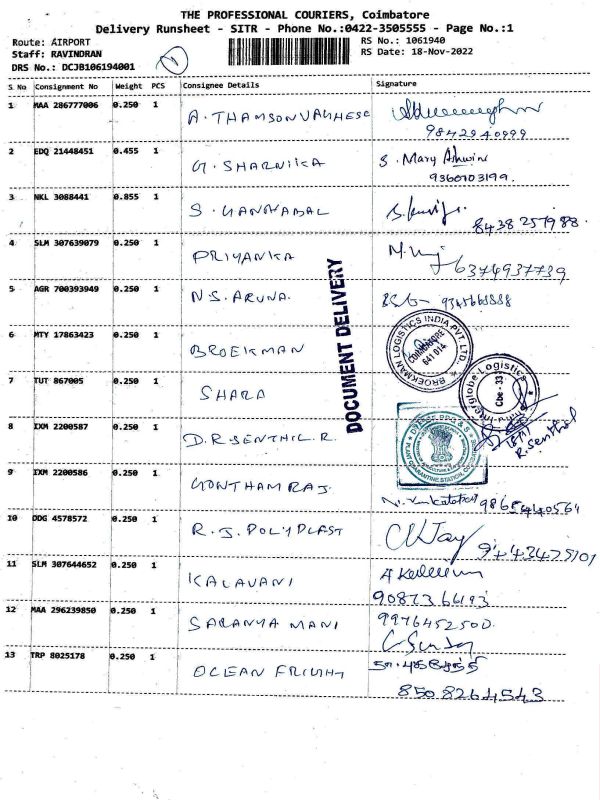 THE PROFESSIONAL COURIERS, Coimbatore
Delivery Runsheet - SITR - Phone No.:0422-3505555 - Page No.:1
Route: AIRPORT
RS No.: 1061940
Staff: RAVINDRAN
RS Date: 18-Nov-2022
DRS No.: DCJB106194001
1
S No Consignment No Weight PCS Consignee Details Signature
1 MAA 286777006 0.250 1 A. THAMSON VARGHESE
9842940999
2 EDQ 21448451 0.455 1 G. SHARNIKA S. Mary Ashwin
9360103199.
3 NKL 3088441 0.855 1
8438257988
4 SLM 307639079 0.250 1 PRIYANKA
6374937739
5 AGR 700393949 0.250 1 N.S. ARUNA.
DOCUMENT DELIVERY
6 MTY 17863423 0.250 1 BROEKMAN
BROEKMAN LOGISTICS INDIA PVT. LTD.
COIMBATORE
641 014
7 TUT 867005 0.250 1 SHARA
Interglobe Logistics
Cbe - 33
8 IXM 2200587 0.250 1 D.R. SENTHIL. R.
PLANT QUARANTINE STATION
18/11
R. Senthil
9 IXM 2200586 0.250 1 GONTHAMRAJ.
10 DDG 4578572 0.250 1 R. J. POLYPLAST
11 SLM 307644652 0.250 1 KALAVANI
9087366193
12 MAA 296239850 0.250 1 SARANYA MANI 9976452500.
13 TRP 8025178 0.250 1 OCEAN FRIGHT
8508264543